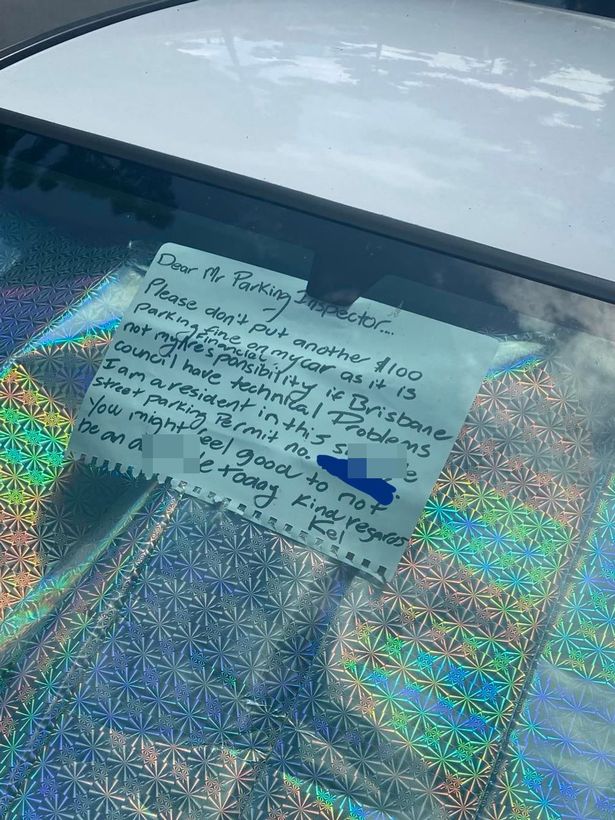 Dear Mr Parking Inspector...
Please don't put another $100
parking fine on my car as it is
not my financial responsibility if Brisbane
council have technical Problems
I am a resident in this
street parking Permit no.
You might feel good to not
be an a today Kind regards
Kel